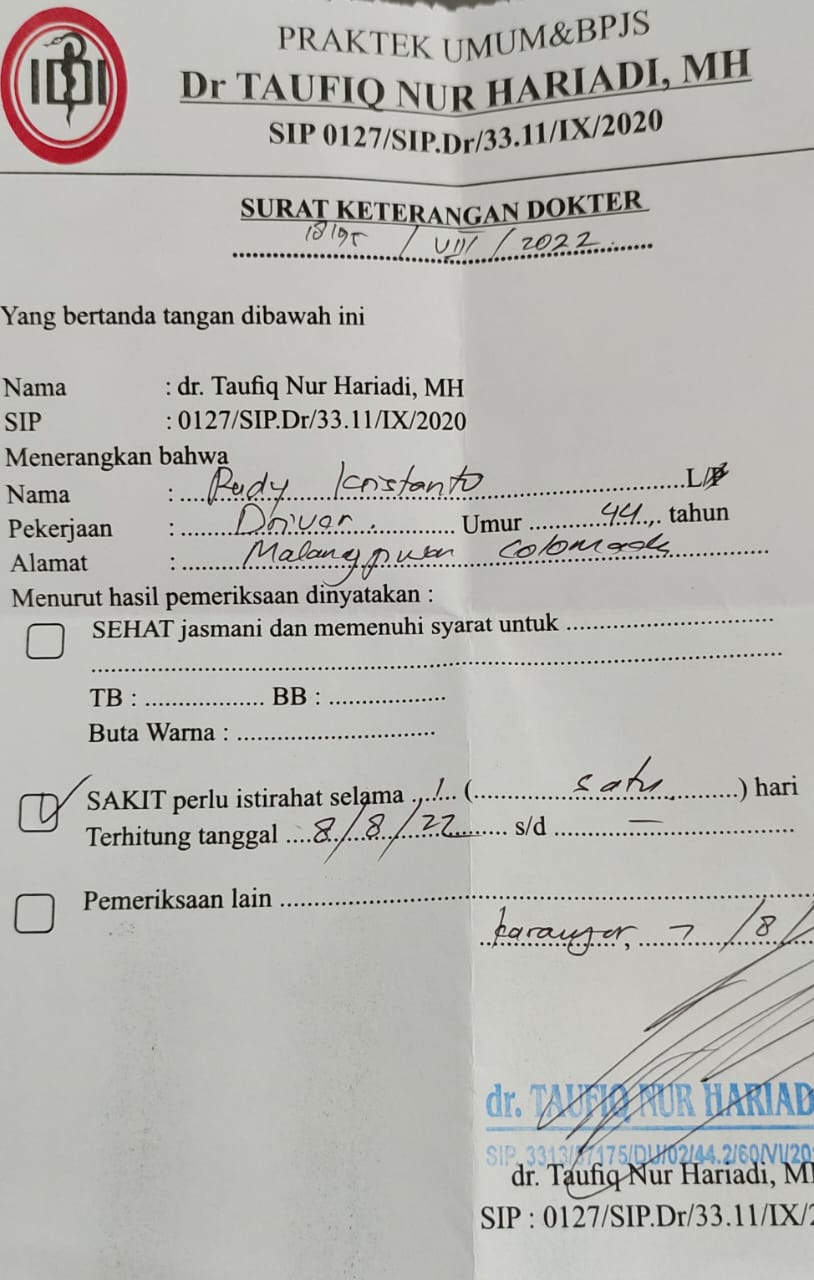 IDI
PRAKTEK UMUM&BPJS
Dr TAUFIQ NUR HARIADI, MH
SIP 0127/SIP.Dr/33.11/IX/2020
SURAT KETERANGAN DOKTER
/ VIII / 2022
Yang bertanda tangan dibawah ini
Nama : dr. Taufiq Nur Hariadi, MH
SIP : 0127/SIP.Dr/33.11/IX/2020
Menerangkan bahwa
Nama : Rudy Kristanto L/P
Pekerjaan : Driver. Umur 44 tahun
Alamat : Colomadu
Menurut hasil pemeriksaan dinyatakan :
SEHAT jasmani dan memenuhi syarat untuk
TB : BB :
Buta Warna :
SAKIT perlu istirahat selama 1 ( satu ) hari
Terhitung tanggal 8/8/22 s/d —
Pemeriksaan lain
7/8/
dr. TAUFIQ NUR HARIAD
SIP. /DU/02/44.2/60/VI/20
dr. Taufiq Nur Hariadi, MH
SIP : 0127/SIP.Dr/33.11/IX/2